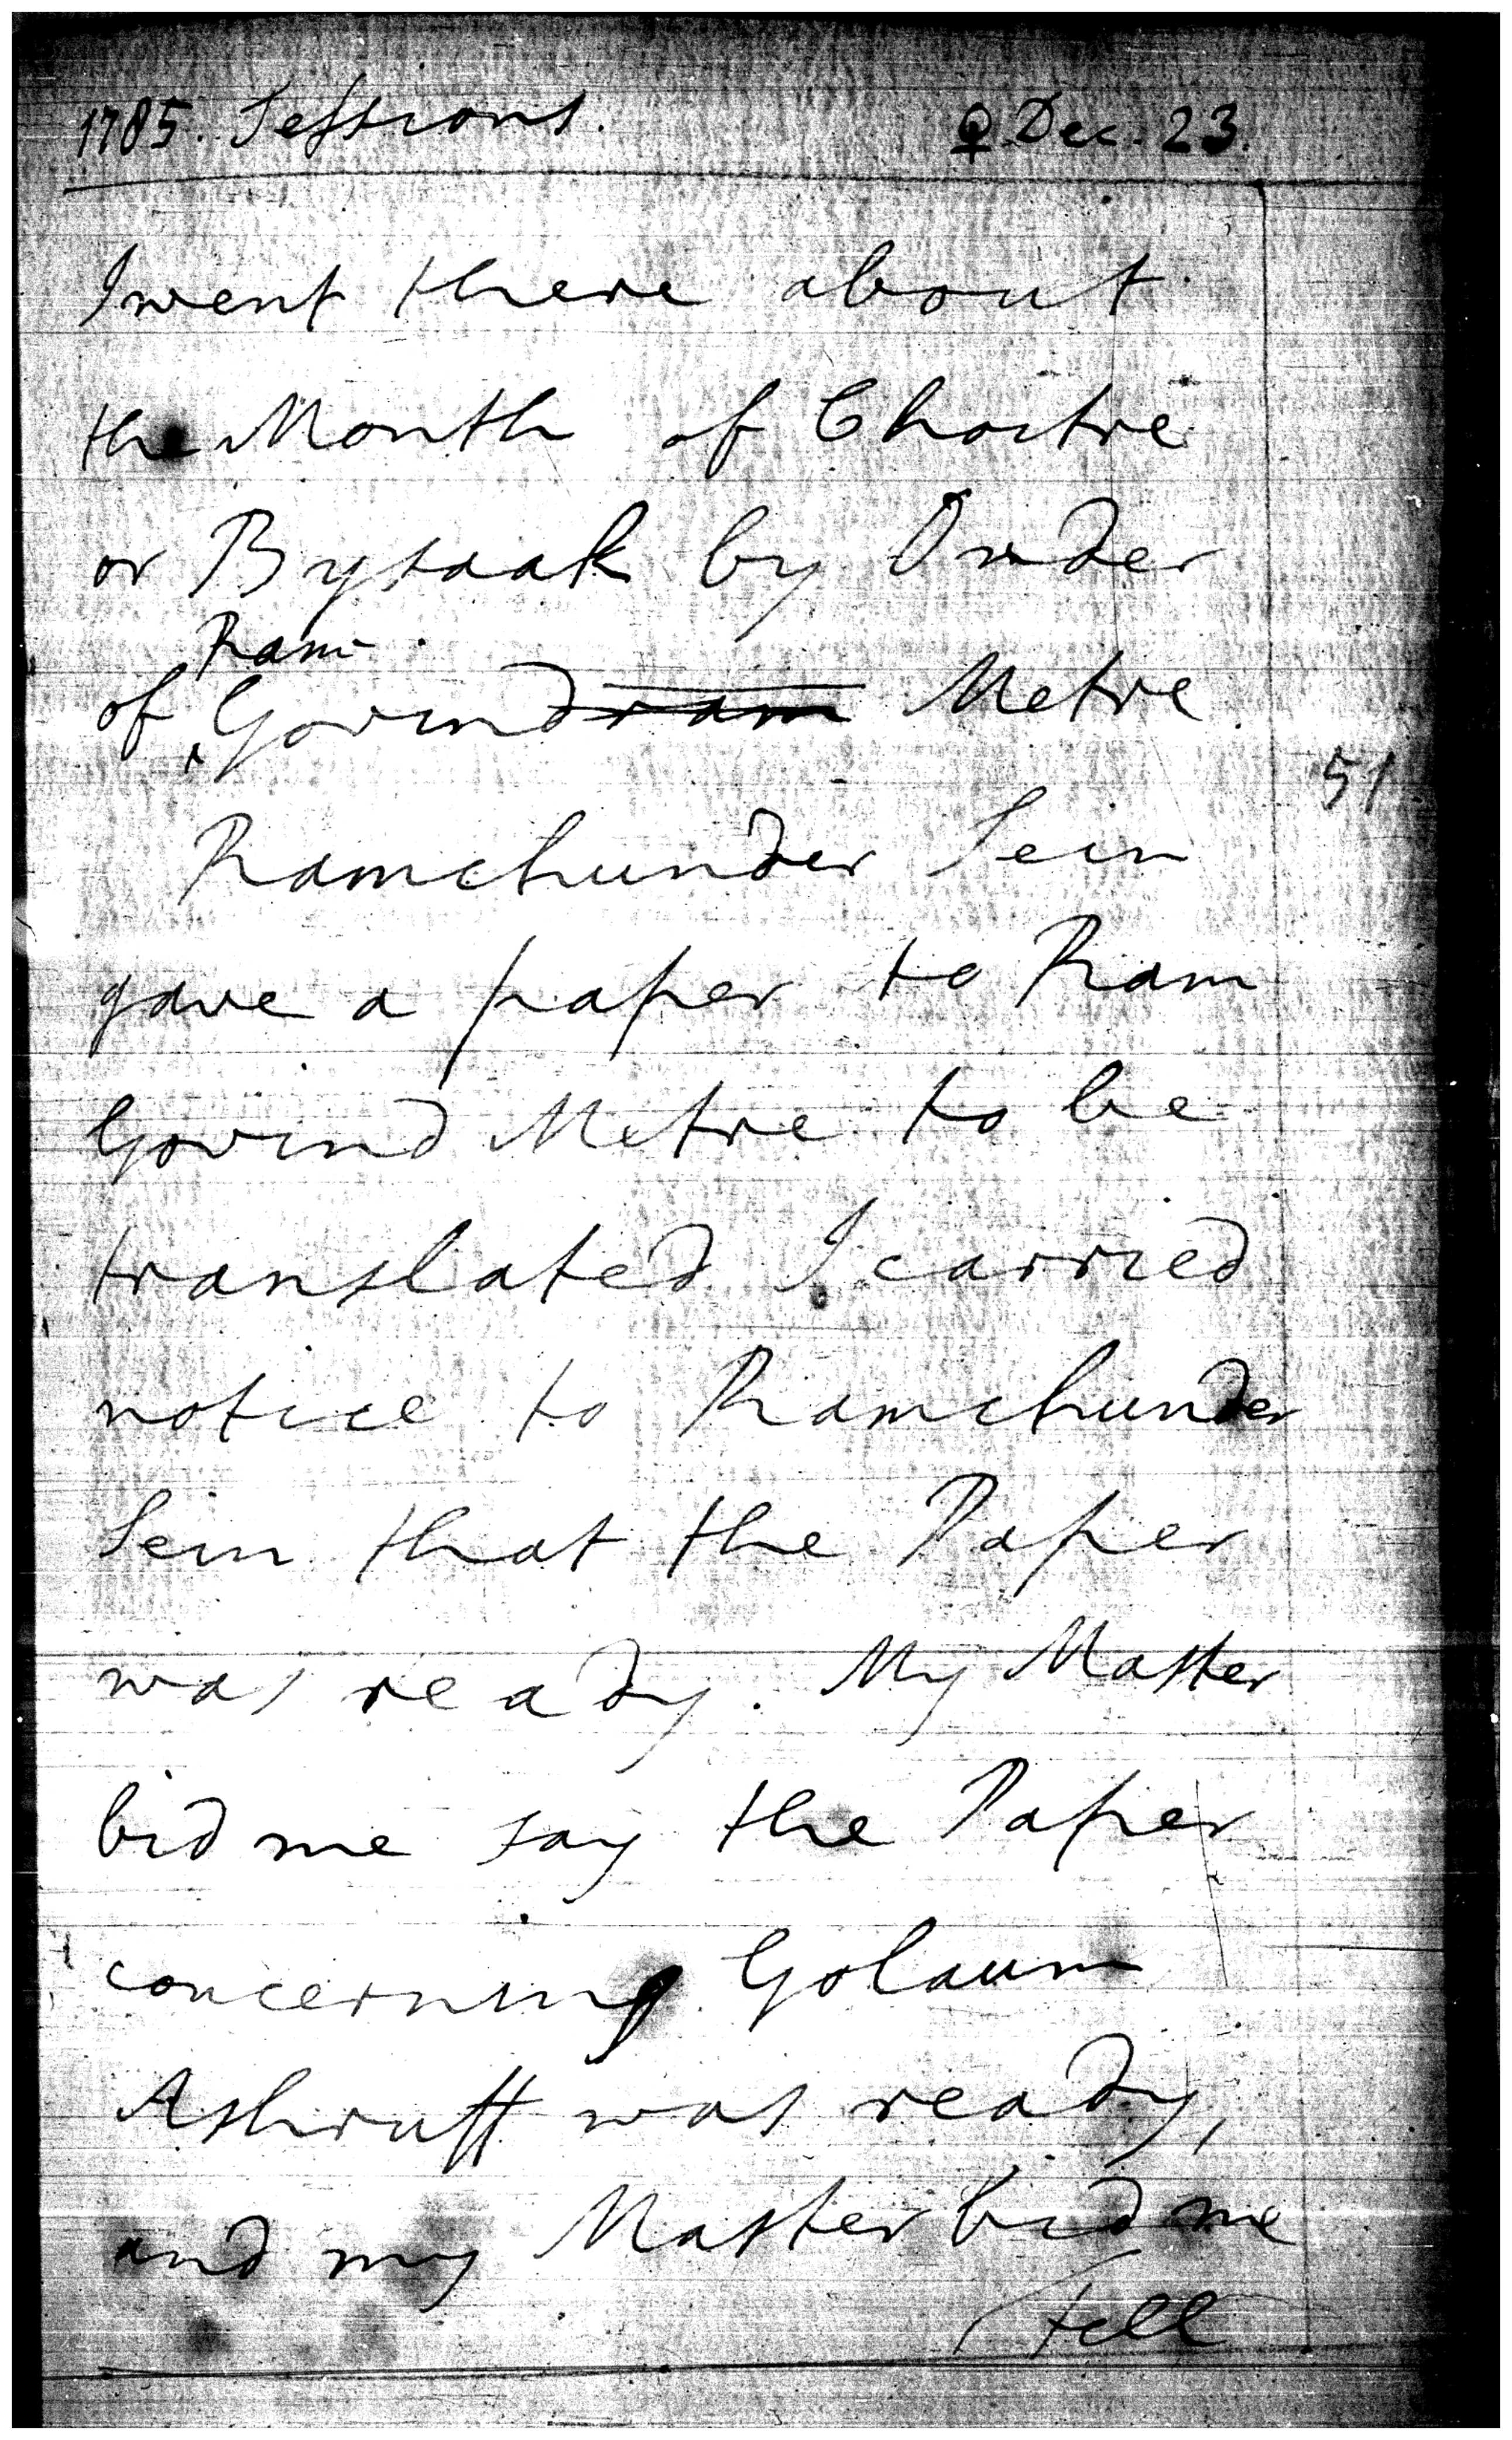 1785. Sessions. ♀ Dec. 23.
I went there about
the Month of Choitre
or Bysaak by Order
Ram
of Govindram Metre
51
Ramchunder Sein
gave a paper to Ram
Govind Metre to be
translated I carried
notice to Ramchunder
Sein that the Paper
was ready. My Master
bid me say the Paper
concerning Golaum
Ashruff was ready,
and my Master bid me
tell